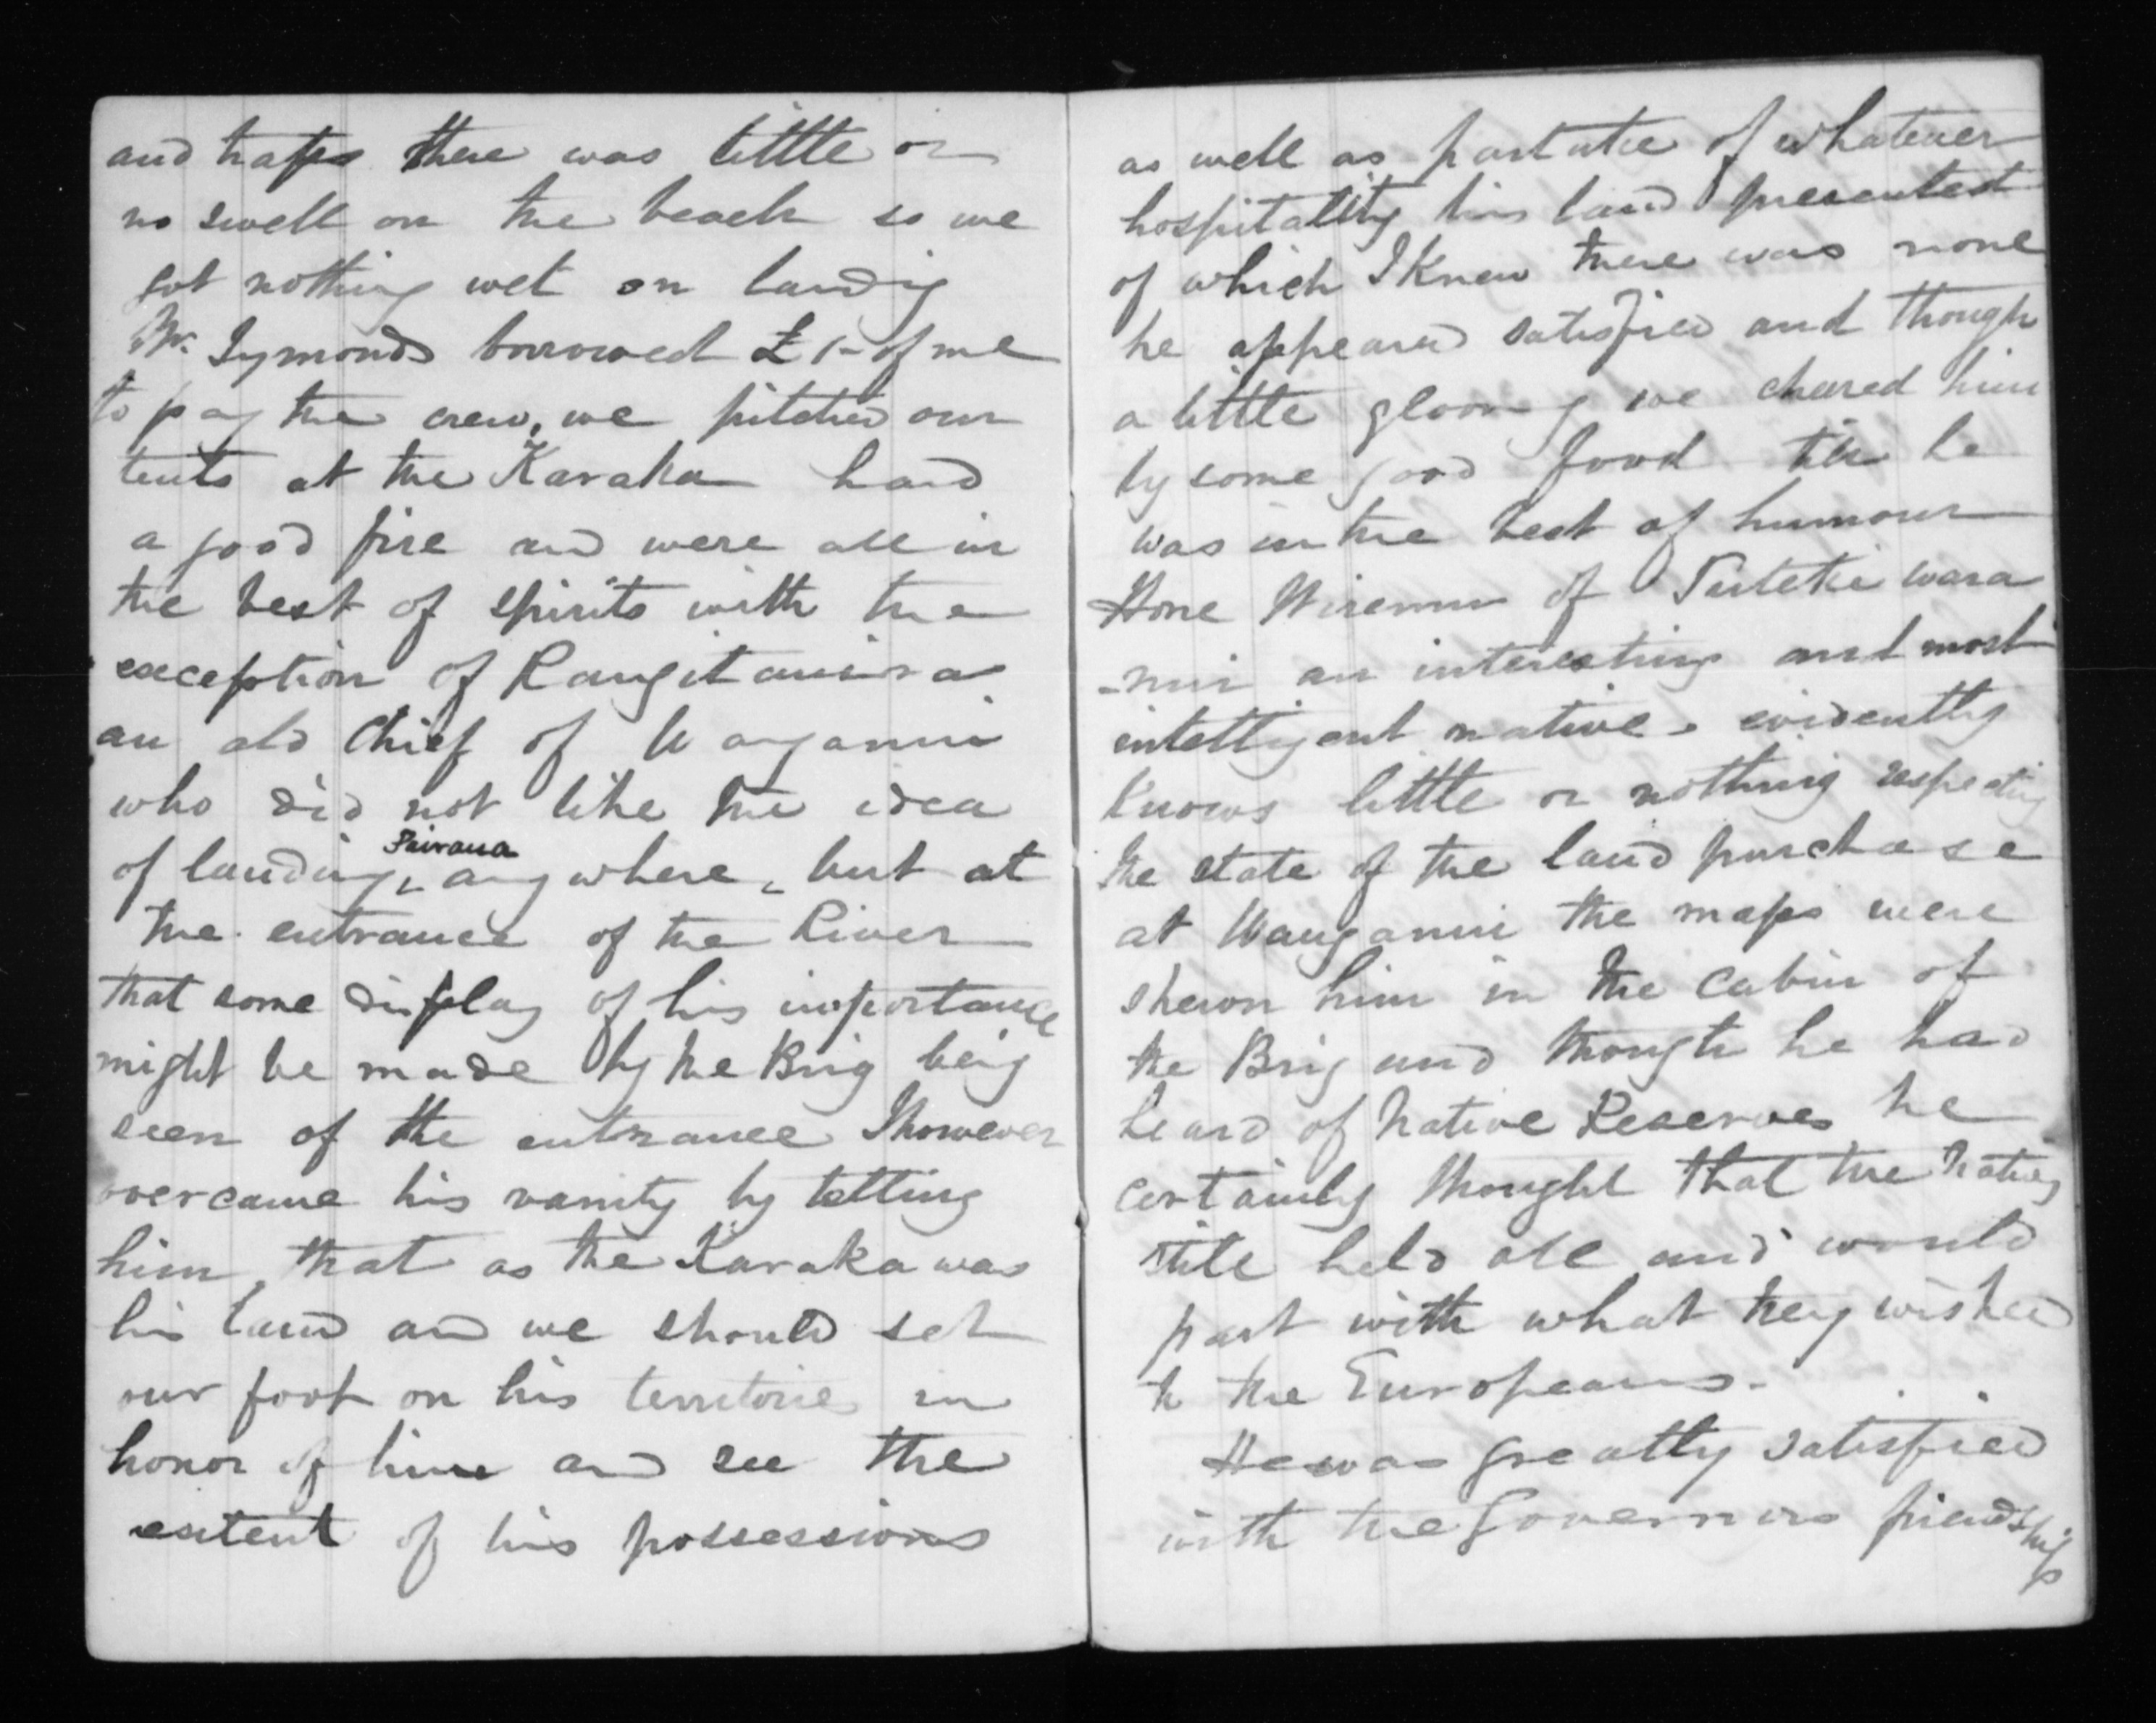 and traps there was little or
no swell on the beach so we
got nothing wet on landig
Mr. Symonds borrowed £1- of me
to pay the crew, we pitched our
tents at the Karaka had
a good fire and were all in
the best of spirits with the
exception of Rangitauira
an old Chief of Wanganui
who did not like the idea
of landing anywhere, but at
the entrance of the River
that some display of his importance
might be made by the Brig being
seen of the entrance I however
overcame his vanity by telling
him, that as the Karaka was
his land and we should set
our foot on his territorie in
honor of him and see the
extent of his possessions
as well as partake of whatever
hospitality his land presented
of which I Knew there was none
he appeared satisfied and though
a little gloomy we cheared him
by some good food till he
was in the best of humour
Hone Wiremu of wara
-nui an interesting and most
intelligent native evidently
Knows little or nothing respecting
the state of the land purchase
at Wanganui the maps were
shewn him in the Cabin of
the Brig and though he had
heard of Native Reserves he
certainly thought that the Natives
still held all and would
part with what they wished
to the Europeans.
He was greatly satisfied
with the Governors friendship